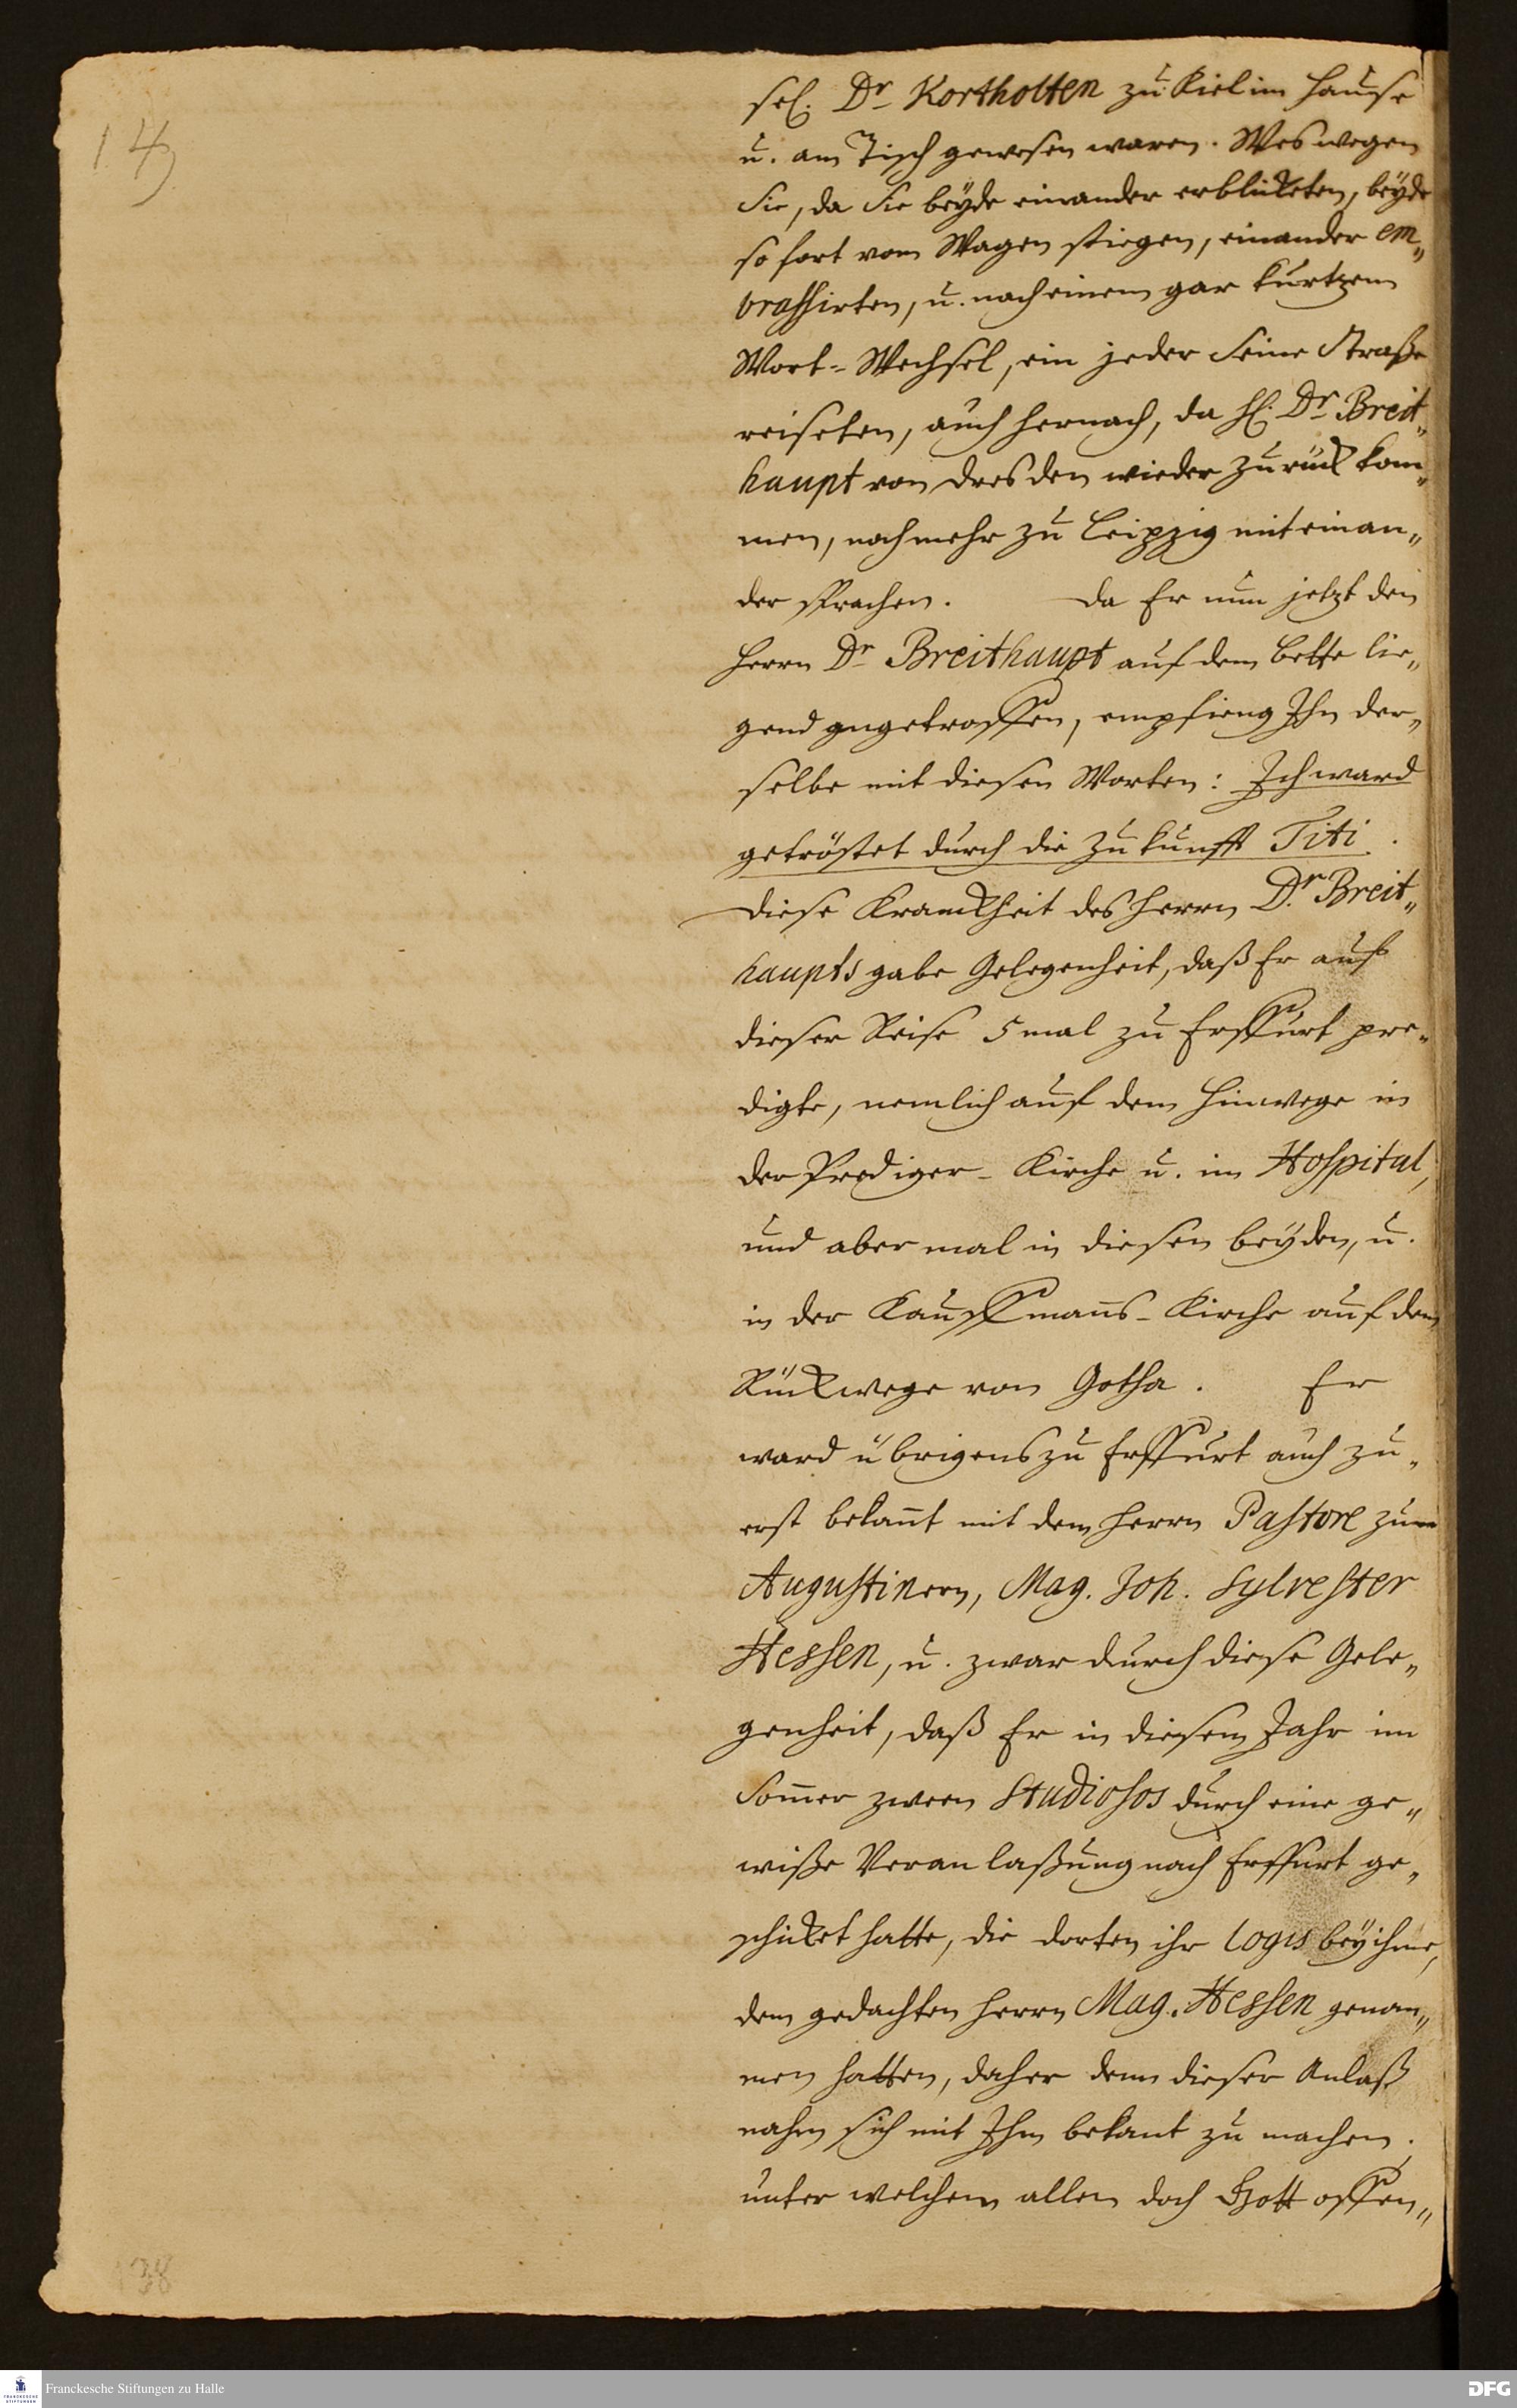 14)
sel. Dr Kortholten zu Kiel im Hause
u. am Tisch gewesen waren. Weswegen
Sie, da Sie beyde einander erblicketen, beyde
so fort vom Wagen stiegen, einander em„
brassirten, u. nach einem gar kurtzem
Wort-Wechsel, ein jeder seine Straße
reiseten, auch hernach, da H. Dr Breit„
haupt von Dresden wieder zurück kom„
men, noch mehr zu Leipzig mit einan„
der sprachen. Da Er nun jetzt den
Herrn Dr Breithaupt auf dem Bette lie„
gend angetroffen, empfieng Ihn der„
selbe mit diesen Worten: Ich ward
getröstet durch die Zukunfft Titi.
Diese Kranckheit des Herrn Dr. Breit„
haupts gabe Gelegenheit, daß Er auf
dieser Reise 5 mal zu Erffurt pre„
digte, nemlich auf dem Hinwege in
der Prediger-Kirche u. im Hospital,
und abermal in diesen beyden, u.
in der Kauffmanns-Kirche auf dem
Rückwege von Gotha. Er
ward übrigens zu Erffurt auch zu„
erst bekannt mit dem Herrn Pastore zun
Augustinern, Mag. Joh. Sylvester
Hessen, u. zwar durch diese Gele„
genheit, daß Er in diesem Jahr im
Sommer zween Studiosos durch eine ge„
wiße Veranlaßung nach Erffurt ge„
schicket hatte, die dorten ihr Logis bey ihme,
dem gedachten Herrn Mag. Hessen genom„
men hatten, daher denn dieser Anlaß
nahm sich mit Ihm bekant zu machen.
unter welchem allen doch Gott offen„
138
Franckesche Stiftungen zu Halle
DFG